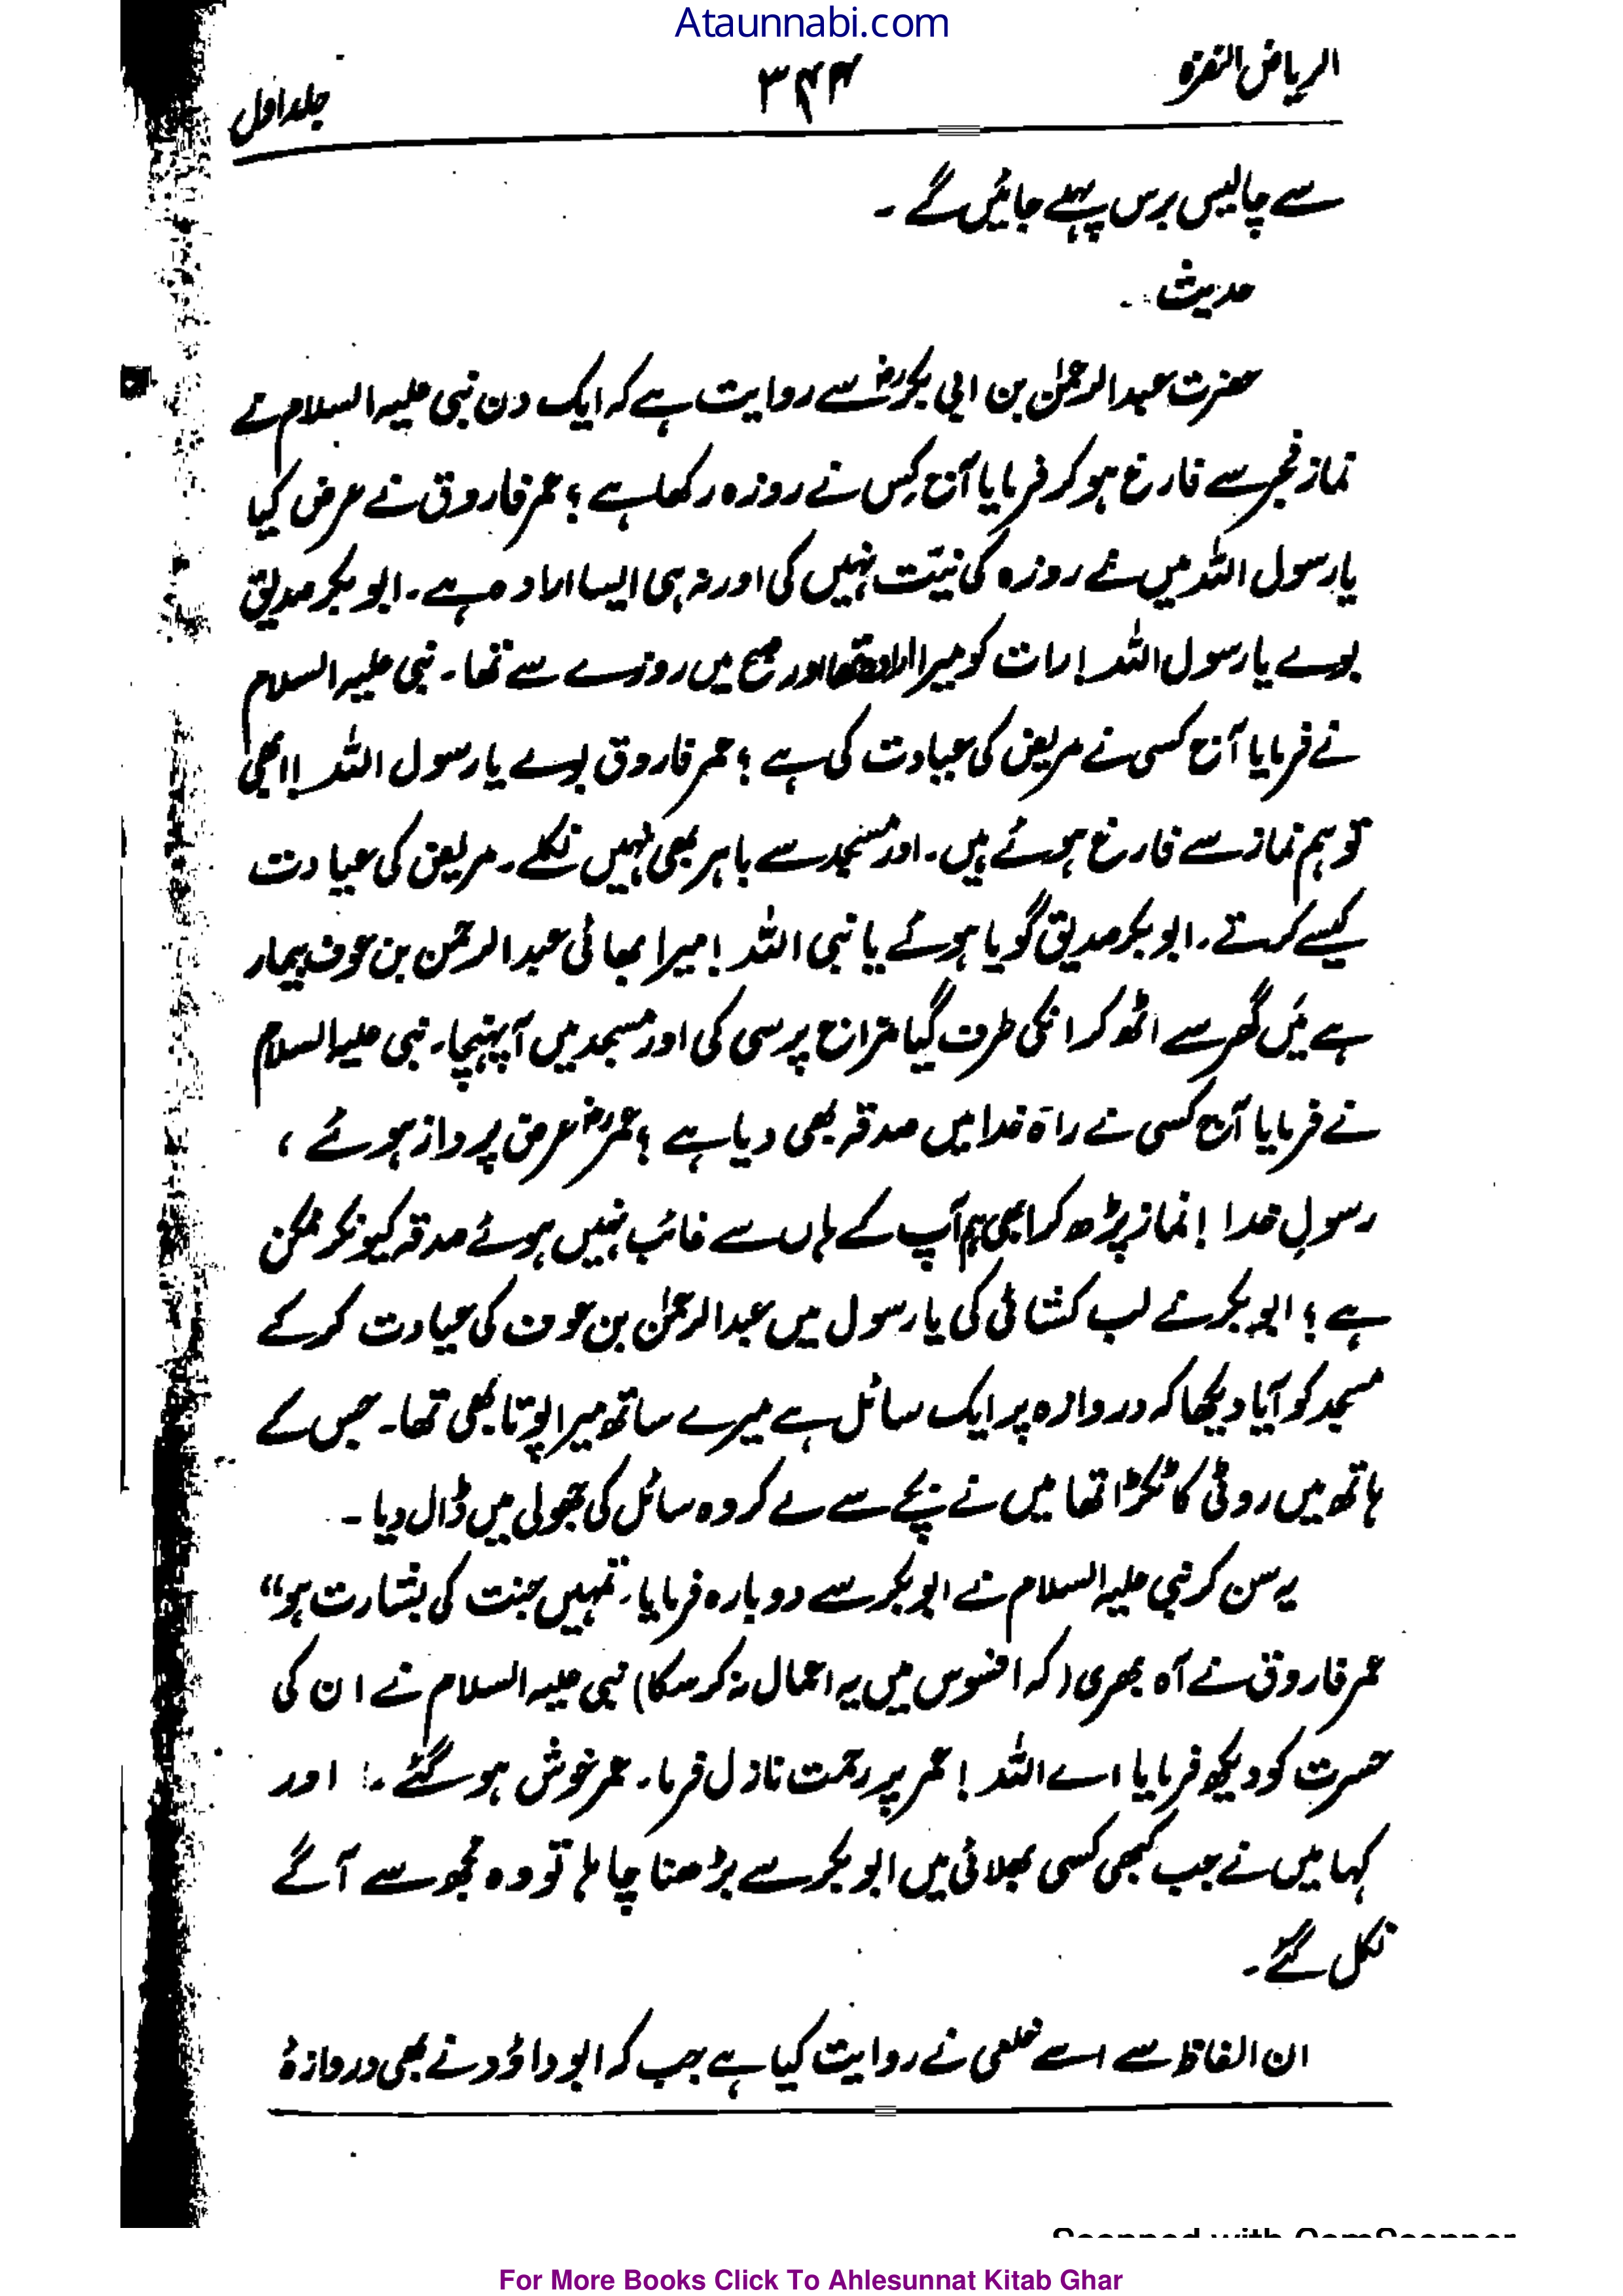 Ataunnabi.com
الریاض النضرہ ۳۴۴ جلد اول
سے چالیس برس پہلے جائیں گے ۔
حدیث :۔
حضرت عبدالرحمٰن بن ابی بکرؓ سے روایت ہے کہ ایک دن نبی علیہ السلام نے
نماز فجر سے فارغ ہو کر فرمایا آج کِس نے روزہ رکھا ہے ؟ عمر فاروق نے عرض کیا
یا رسول اللہ میں نے روزہ کی نیّت نہیں کی اور نہ ہی ایسا ارادہ ہے ۔ ابوبکر صدیق
بولے یا رسول اللہ ! رات کو میرا ارادہ تھا اور صبح میں روزے سے تھا ۔ نبی علیہ السلام
نے فرمایا آج کسی نے مریض کی عیادت کی ہے ؟ عمر فاروق بولے یا رسول اللہ !! ابھی
تو ہم نماز سے فارغ ہوئے ہیں ۔ اور مسجد سے باہر بھی نہیں نکلے ۔ مریض کی عیادت
کیسے کرتے ۔ ابوبکر صدیق گویا ہوئے یا نبی اللہ ! میرا بھائی عبدالرحمن بن عوف بیمار
ہے میَں گھر سے اٹھ کر انکی طرف گیا مزاج پرسی کی اور مسجد میں آپہنچا ۔ نبی علیہ السلام
نے فرمایا آج کسی نے راہ خدا میں صدقہ بھی دیا ہے ؟ عمرؓ عرض پرداز ہوئے ،
رسولِ خدا ! نماز پڑھ کر ابھی ہم آپ کے ہاں سے غائب نہیں ہوئے صدقہ کیونکر ممکن
ہے ؟ ابوبکر نے لب کشائی کی یا رسول میں عبدالرحمٰن بن عوف کی عیادت کر کے
مسجد کو آیا دیکھا کہ دروازہ پر ایک سائل ہے میرے ساتھ میرا پوتا بھی تھا ۔ جس کے
ہاتھ میں روٹی کا ٹکڑا تھا میں نے بچے سے لے کر وہ سائل کی جھولی میں ڈال دیا ۔
یہ سن کر نبی علیہ السلام نے ابوبکر سے دوبارہ فرمایا ”تمہیں جنت کی بشارت ہو“
عمر فاروق نے آہ بھری (کہ افسوس میں یہ اعمال نہ کر سکا) نبی علیہ السلام نے ان کی
حسرت کو دیکھ فرمایا اے اللہ ! عمر پر رحمت نازل فرما ۔ عمر خوش ہو گئے ۔ اور
کہا میں نے جب کبھی کسی بھلائی میں ابوبکر سے بڑھنا چاہا تو وہ مجھ سے آگے
نکل گئے ۔
ان الفاظ سے اسے خلعی نے روایت کیا ہے جب کہ ابو داؤد نے بھی دروازۂ
Scanned with CamScanner
For More Books Click To Ahlesunnat Kitab Ghar